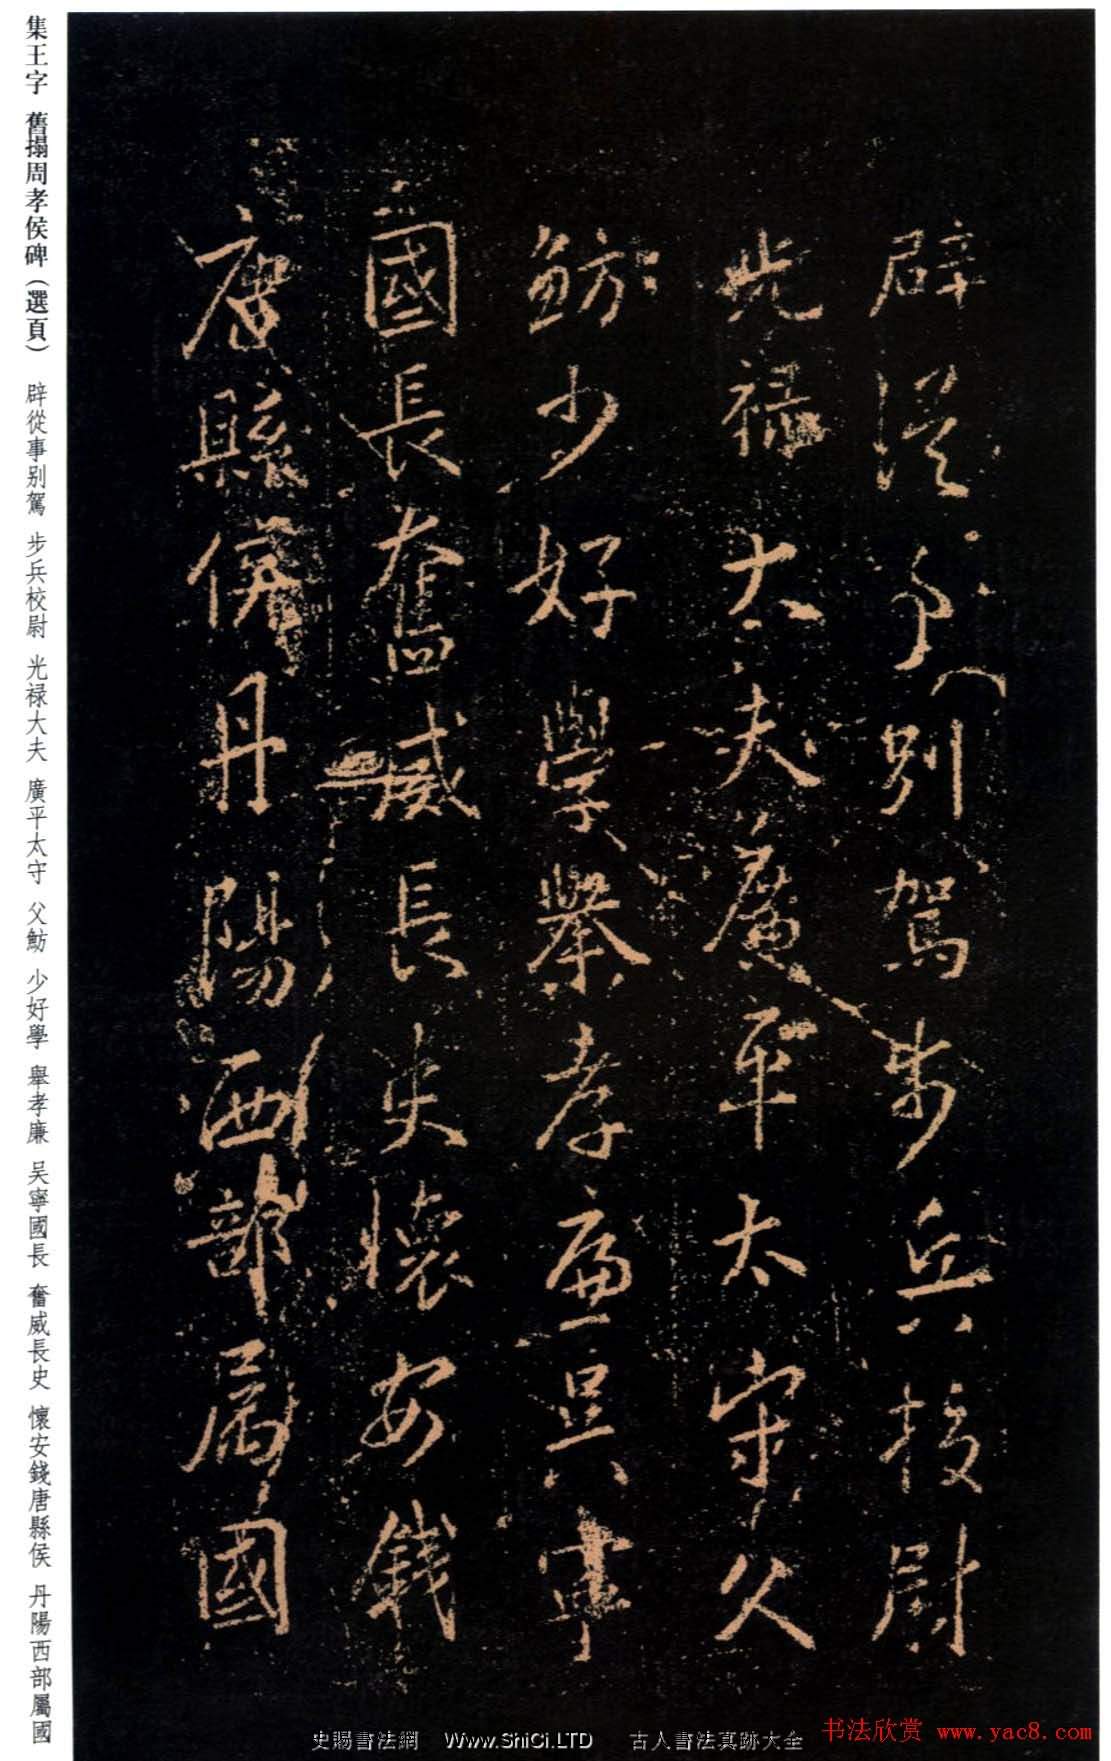 辟從事別駕步兵校尉
光禄大夫廣平太守父
魴少好學舉孝廉吴寧
國長奮威長史懷安錢
唐縣侯丹陽西部屬國
集王字 舊搨周孝侯碑（選頁） 辟從事别駕 步兵校尉 光禄大夫 廣平太守 父魴 少好學 舉孝廉 吴寧國長 奮威長史 懷安錢唐縣侯 丹陽西部屬國
史賜書法網 Www.ShiCi.LTD 古人書法真跡大全
书法欣赏 www.yac8.com